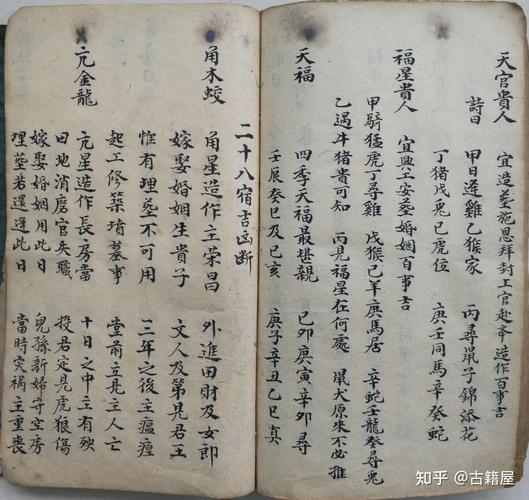 天官貴人 宜造葬施恩拜封工官赴亲 造作百事吉
詩曰 甲日逢雞乙猴家 丙尋鼠子錦添花
丁猪戊兎已虎位 庚壬同馬辛癸蛇
福星貴人 宜興工安葬婚姻百事吉
甲騎猛虎丁尋雞 戊猴已羊庚馬居 辛蛇壬龍癸尋兎
乙過牛猪貴可知 丙見福星在何處 鼠犬原來不必推
天福 四季天福最堪親 已卯庚寅辛卯尋
壬辰癸巳及已亥 庚子辛丑乙巳真
二十八宿吉凶断
角木蛟 角星造作主荣昌 外進田財及女郎
嫁娶婚姻生貴子 文人及第見君主
惟有埋葬不可用 三年之後主瘟𤶊
起工修築墳墓事 堂前立見主人亡
亢金龍 亢星造作長房當 十日之中主有殃
田地消磨官失職 投君定是虎狼傷
嫁娶婚姻用此日 兒孫新婦守空房
埋葬若還逢此日 當時灾禍主重喪
知乎 @古籍屋